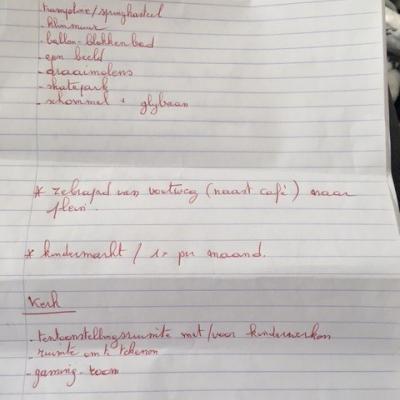 trampoline/springkasteel
- klimmuur
- ballen-blokkenbad
- een beeld
- draaimolens
- skatepark
- schommel + glybaan
* zebrapad van voetweg (naast café) naar
plein.
* kindermarkt / 1x per maand.
Kerk
- tentoonstellingsruimte met/voor kinderwerken
- ruimte om te tekenen
- gaming-room